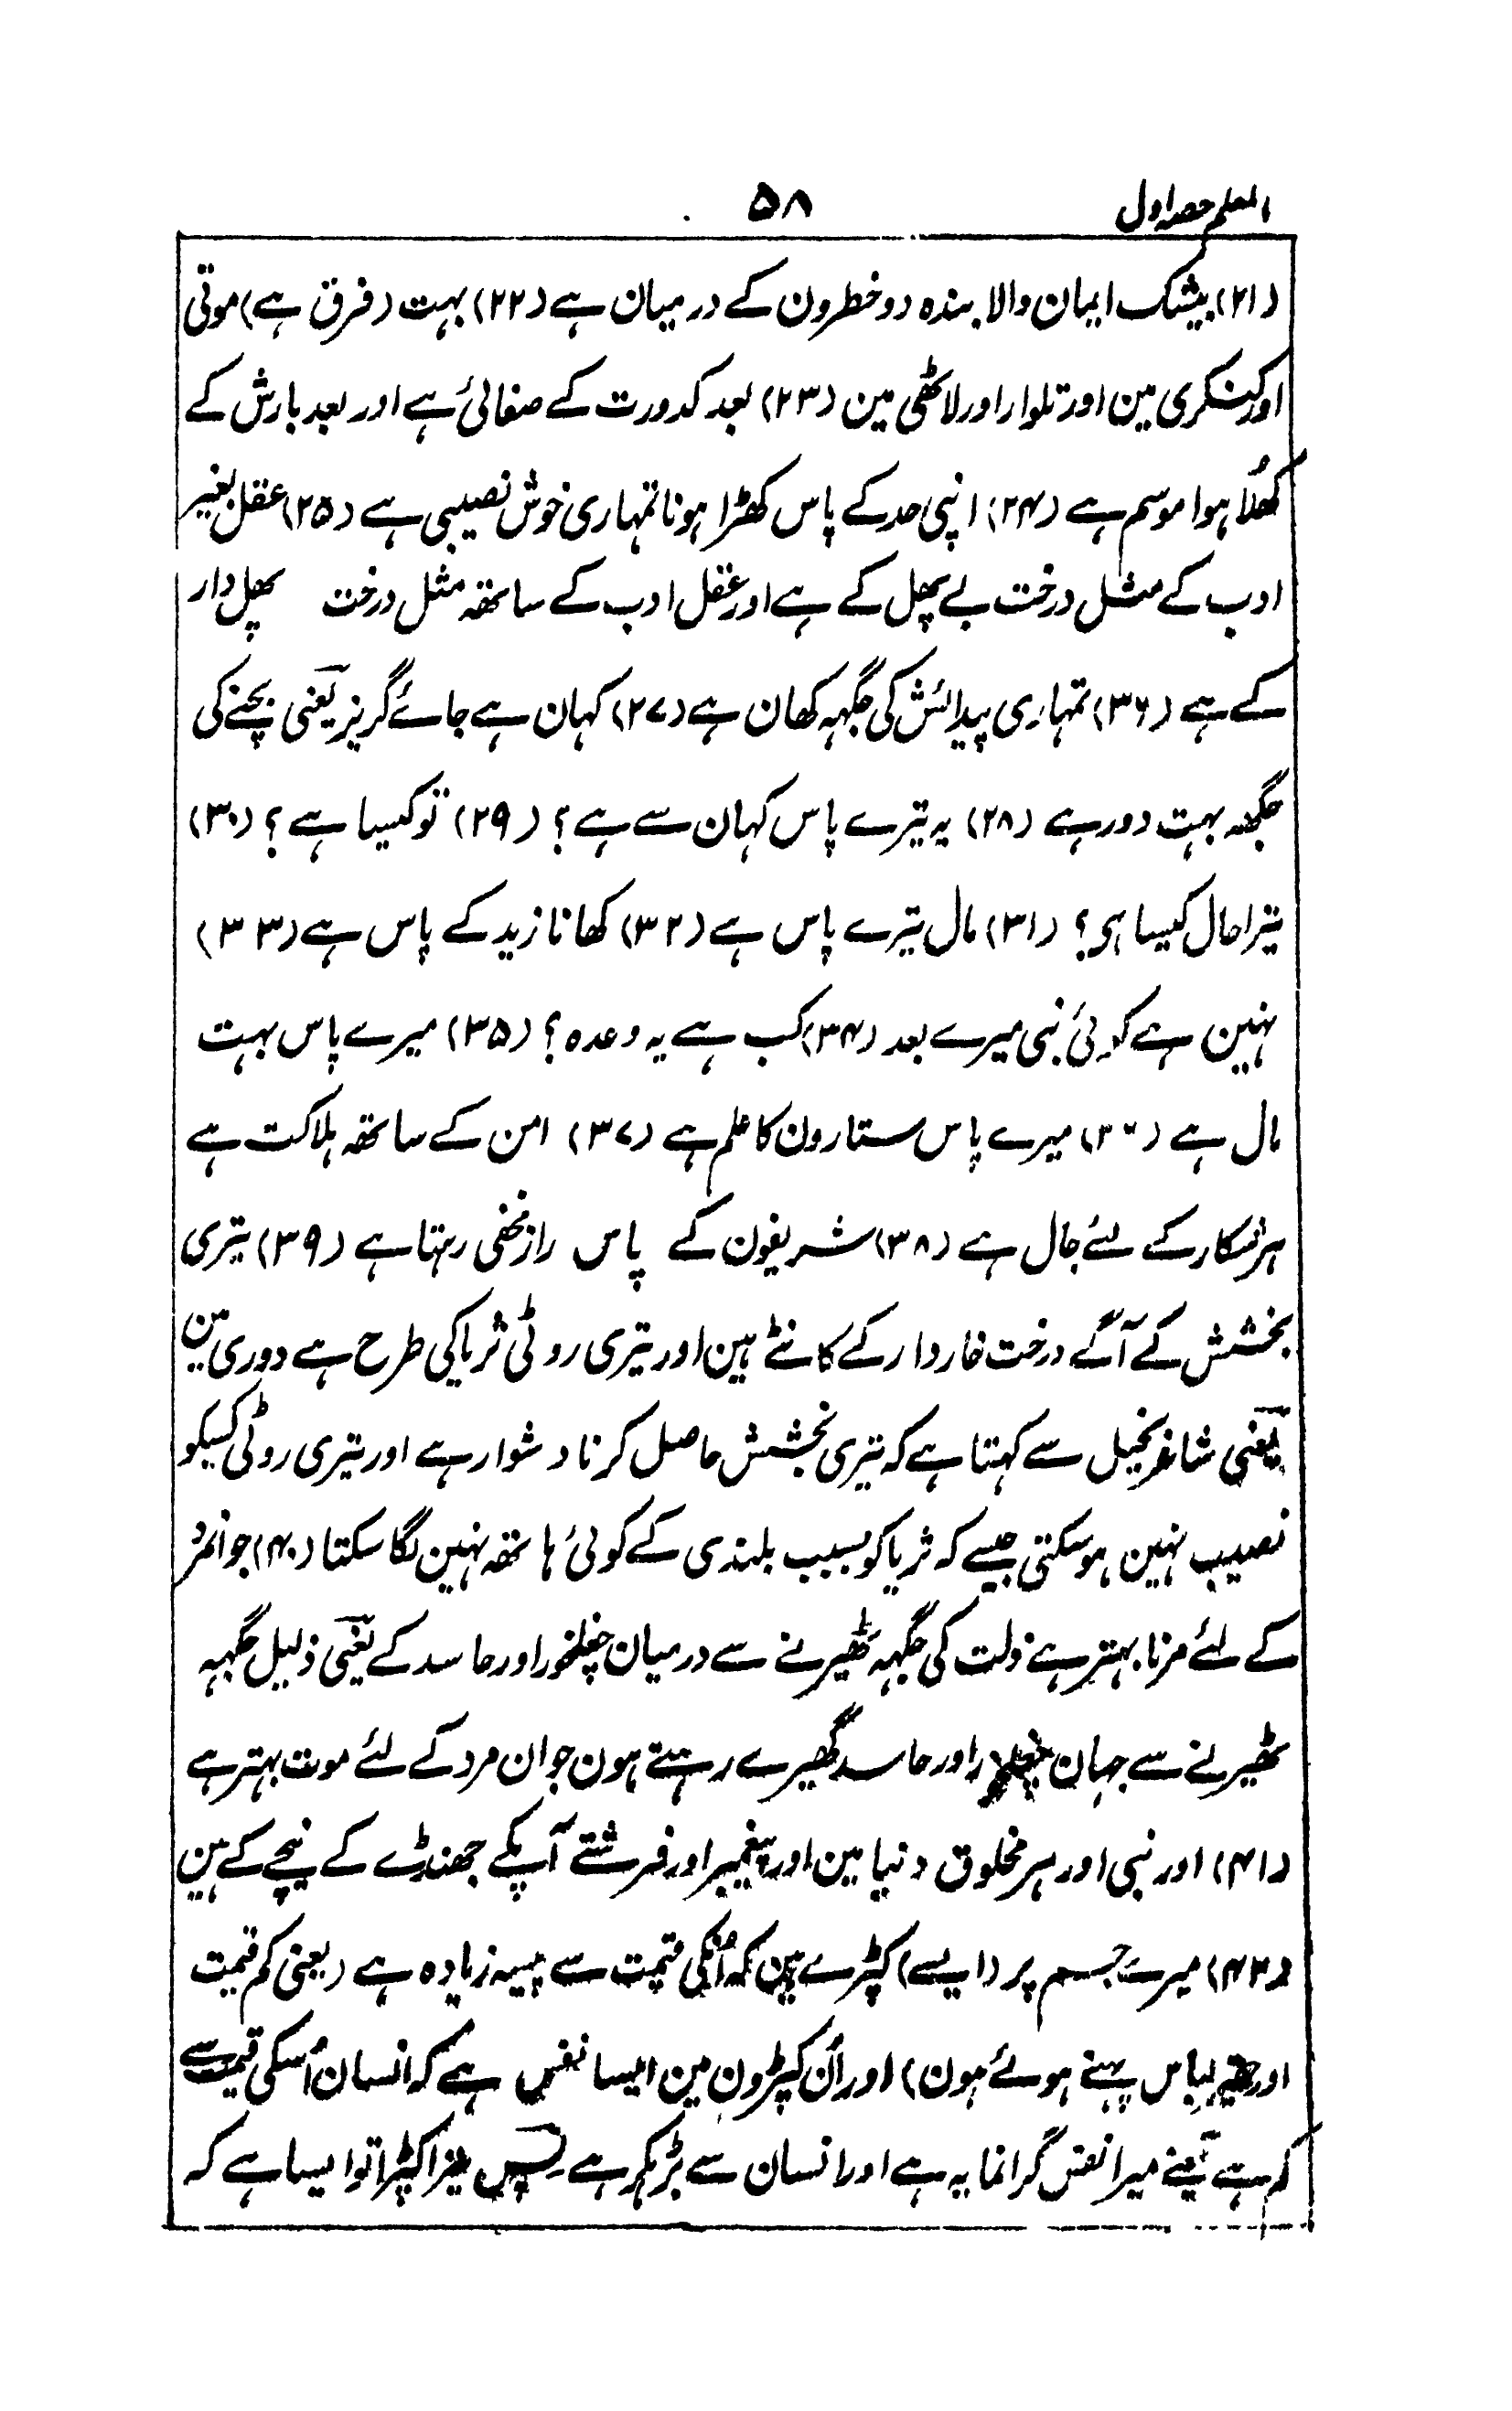 المعلم حصہ اول
۵۸
(۲۱) بیشک ایمان والا بندہ دو خطرون کے درمیان ہے (۲۲) بہت (فرق ہے) موتی
اور کنکری مین اور تلوار اور لاٹھی مین (۲۳) بعد کدورت کے صفائی ہے اور بعد بارش کے
کھُلا ہوا موسم ہے (۲۴) اپنی حد کے پاس کھڑا ہونا تمہاری خوش نصیبی ہے (۲۵) عقل بغیر
ادب کے مثل درخت بے پھل کے ہے اور عقل ادب کے ساتھ مثل درخت پھل دار
کے ہے (۳۶) تمہاری پیدائش کی جگہہ کھان ہے (۲۷) کہان ہے جائے گریز یعنی بچنے کی
جگہہ بہت دور ہے (۲۸) یہ تیرے پاس کہان سے ہے؟ (۲۹) تو کیسا ہے؟ (۳۰)
تیرا حال کیسا ہی؟ (۳۱) مال تیرے پاس ہے (۳۲) کھانا زید کے پاس ہے (۳۳)
نہین ہے کوئی نبی میرے بعد (۳۴) کب ہے یہ وعدہ؟ (۳۵) میرے پاس بہت
مال ہے (۳۶) میرے پاس ستارون کا علم ہے (۳۷) امن کے ساتھ ہلاکت ہے
ہر شکار کے لئے جال ہے (۳۸) شریفون کے پاس راز مخفی رہتا ہے (۳۹) تیری
بخشش کے آگے درخت خاردار کے کانٹے ہین اور تیری روٹی ثریا کی طرح ہے دوری مین
یعنی شاعر بخیل سے کہتا ہے کہ تیری بخشش حاصل کرنا دشوار ہے اور تیری روٹی کسیکو
نصیب نہین ہو سکتی جیسے کہ ثریا کو بسبب بلندی کے کوئی ہاتھ نہین لگا سکتا (۴۰) جوانمرد
کے لئے مرنا بہتر ہے ذلت کی جگہہ ٹھیرنے سے درمیان چغلخور اور حاسد کے یعنی ذلیل جگہہ
ٹھیرنے سے جہان چغلخور اور حاسد گھیرے رہتے ہون جوان مرد کے لئے موت بہتر ہے
(۴۱) اور نبی اور ہر مخلوق دنیا مین اور پیغمبر اور فرشتے آپکے جھنڈے کے نیچے کے ہین
(۴۲) میرے جسم پر (ایسے) کپڑے ہین کہ اُنکی قیمت سے پیسہ زیادہ ہے (یعنی کم قیمت
اور حقیر لباس پہنے ہوئے ہون) اور اُن کپڑون مین ایسا نفس ہے کہ انسان اُسکی قیمت سے
کم ہے یعنے میرا نفس گرانمایہ ہے اور انسان سے بڑہکر ہے پس میرا کپڑا تو ایسا ہے کہ